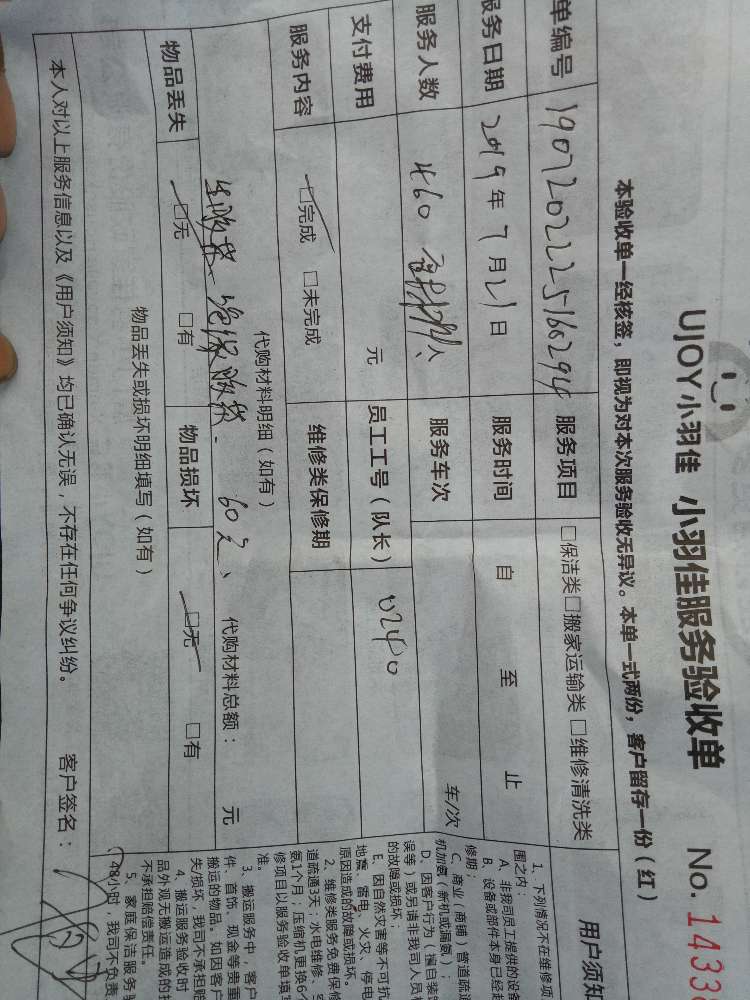 UJOY小羽佳 小羽佳服务验收单 No. 1433
本验收单一经核签，即视为对本次服务验收无异议。本单一式两份，客户留存一份（红）
单编号 190720222516029 服务项目 □保洁类□搬家运输类 □维修清洗类
服务日期 2019年7月21日 服务时间 自 至 止
服务人数 460 人 服务车次 车/次
支付费用 元 员工工号（队长） 0240
服务内容 □完成 □未完成 维修类保修期
代购材料明细（如有）
60元、 代购材料总额： 元
物品丢失 □无 □有 物品损坏 □无 □有
物品丢失或损坏明细填写（如有）
本人对以上服务信息以及《用户须知》均已确认无误，不存在任何争议纠纷。 客户签名：
用户须知
1、下列情况不在维修项
围之内：
A、非我司员工提供的设备
B、设备或部件本身已经超
修期；
C、商业（商铺）管道疏通
机加氨（新机或漏氨）；
D、因客户行为（擅自装
误等）或另请非我司人员
的故障或损坏；
E、因自然灾害等不可抗
地震、雷电、火灾、停电
原因造成的故障或损坏。
2、维修类服务免费保修
道疏通3天；水电维修、空
氨1个月；压缩机更换6个
修项目以服务验收单填写
准。
3、搬运服务中，客户
件、首饰、现金等贵重
搬运的物品。如因客户
失/损坏，我司不承担赔
4、搬运服务验收时
品外观无搬运造成的
不承担赔偿责任。
5、家庭保洁服务验
48小时，我司不负责